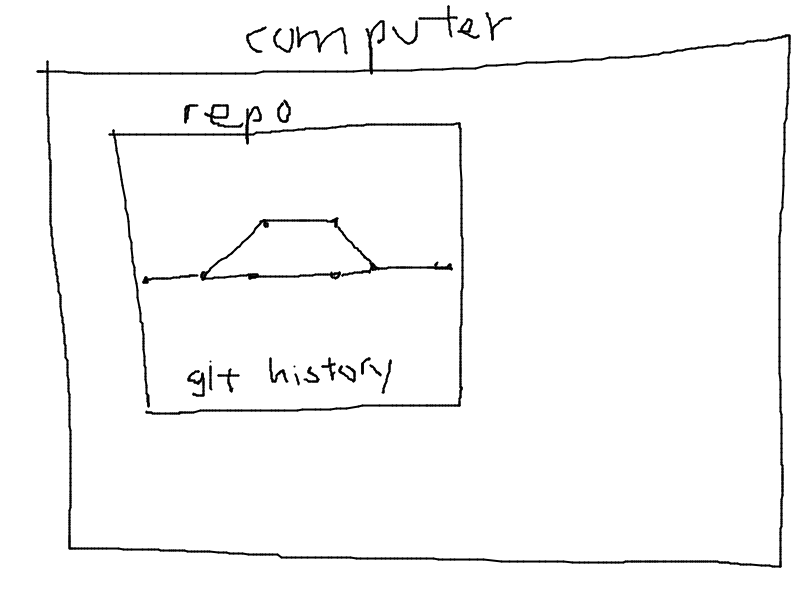 computer
repo
git history